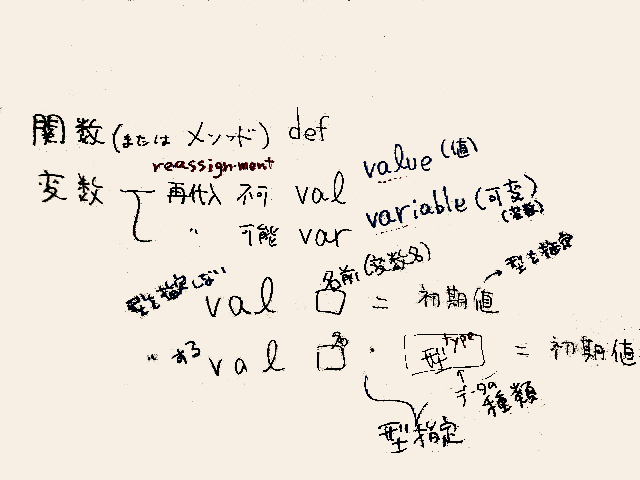 関数(またはメソッド) def
reassignment
変数 再代入 不可 val value (値)
〃 可能 var variable (可変)
(変数)
型を指定しない val □ 名前(変数名) = 初期値 → 型を推定
〃 ある val □ 名 : 型 type = 初期値
データの種類
型指定